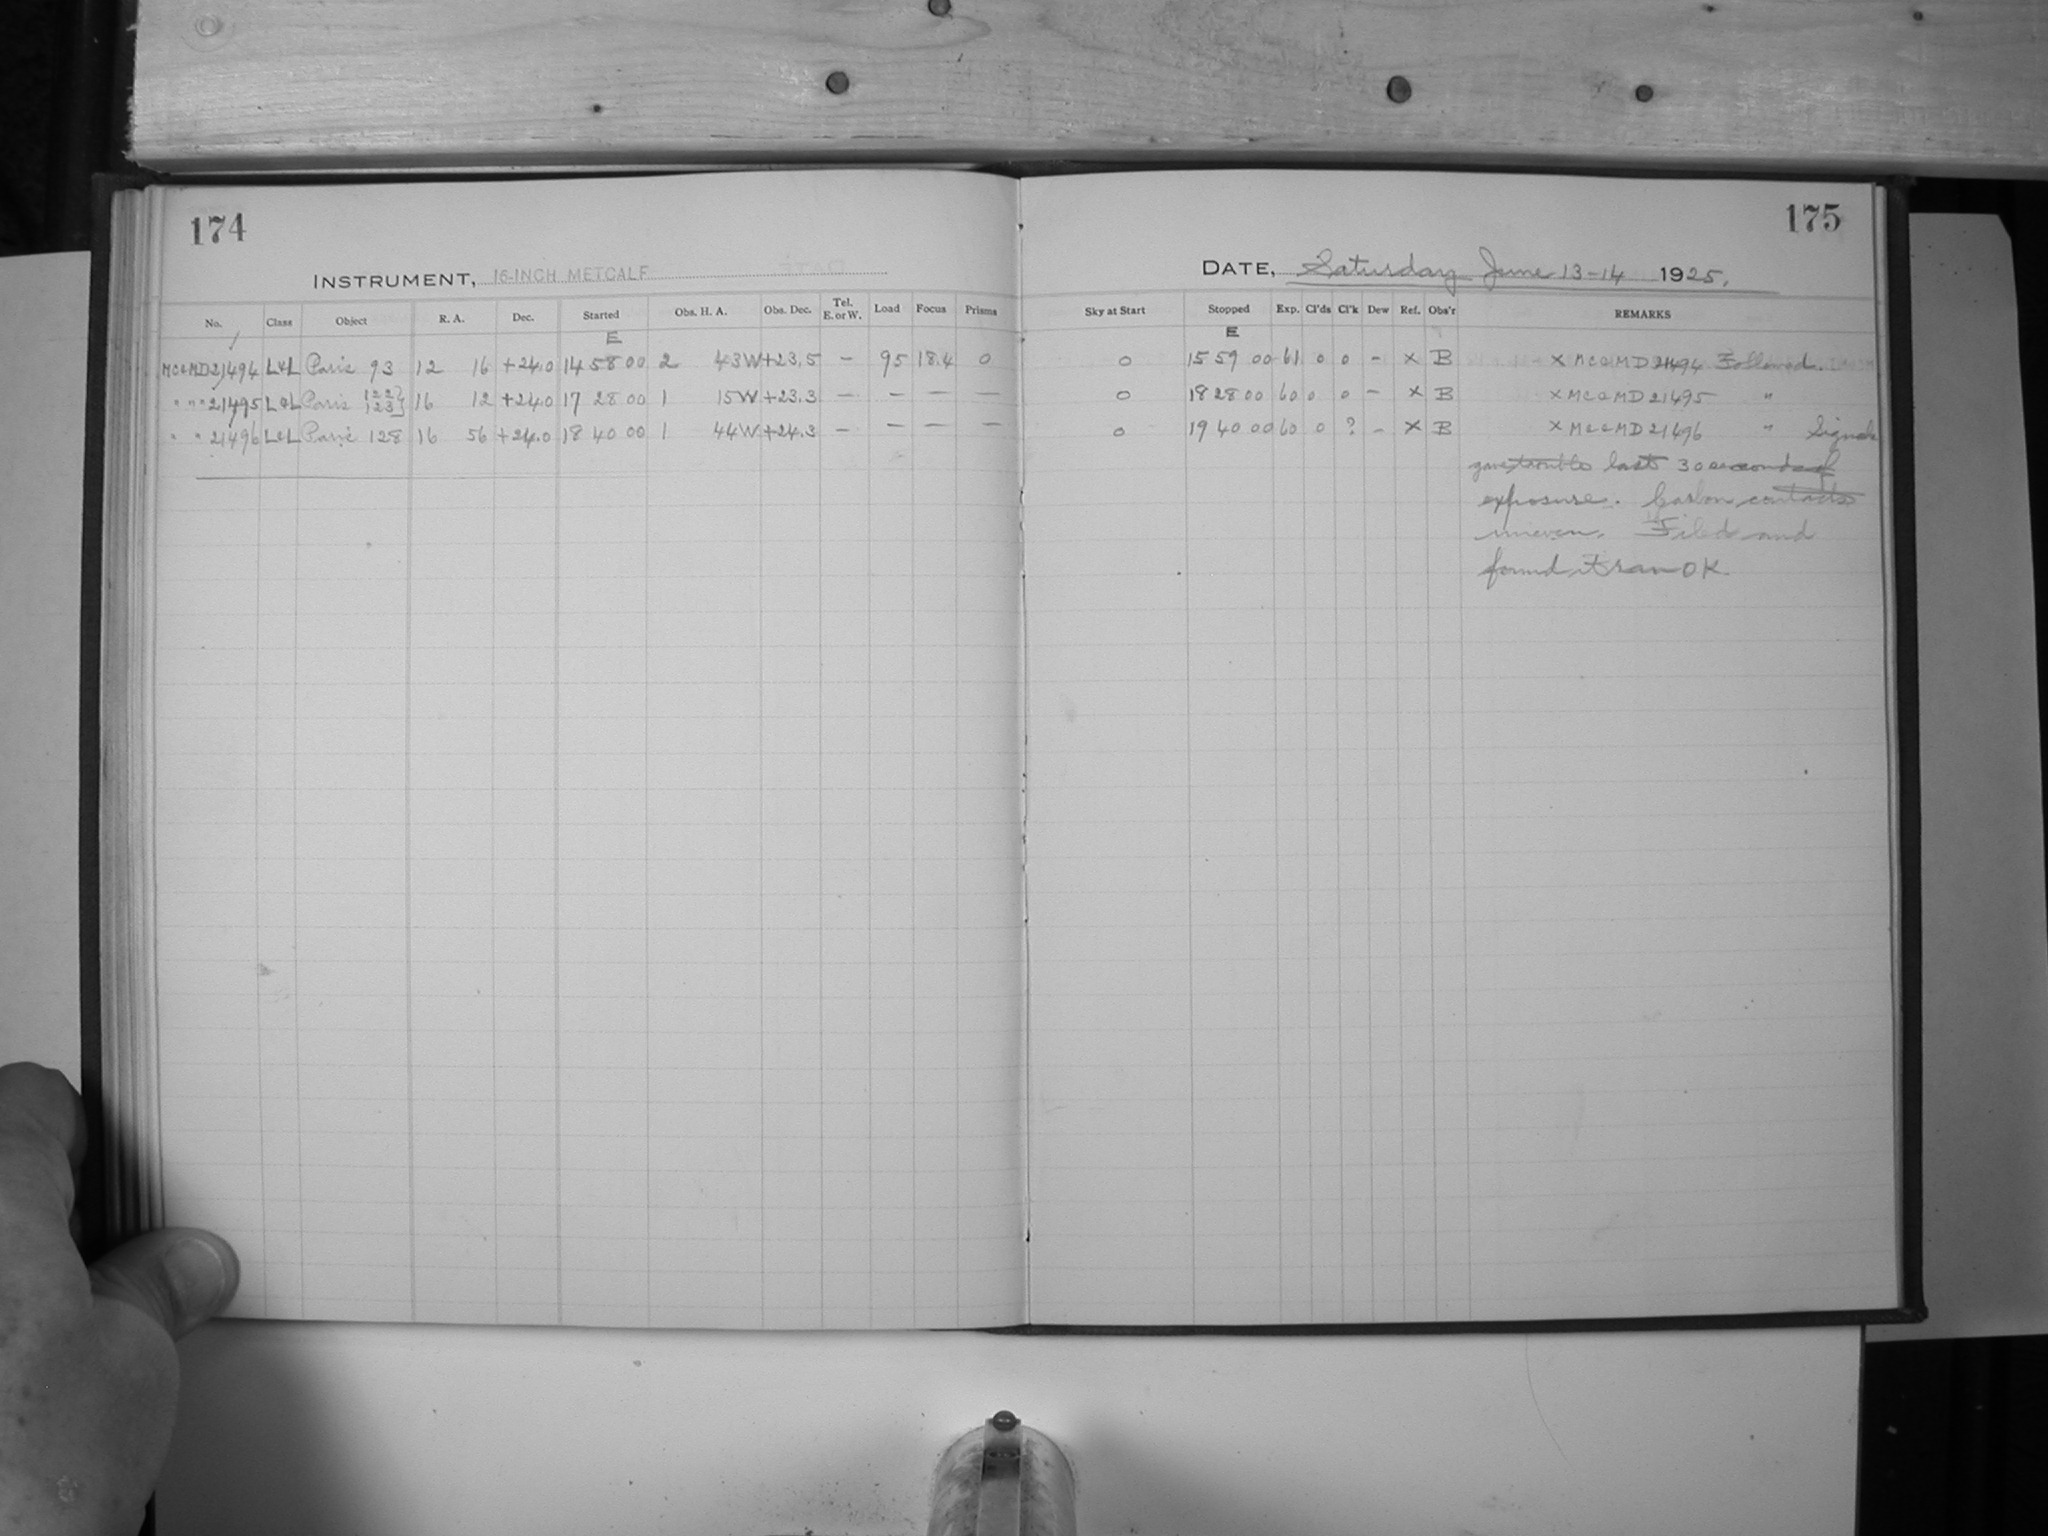 174
INSTRUMENT, 16-INCH METCALF
No. Class Object R. A. Dec. Started Obs. H. A. Obs. Dec. Tel. E. or W. Load Focus Prisms
E
MC&MD21494 L&L Paris 93 12 16 +24.0 14 58 00 2 43W +23.5 – 95 18.4 0
" " " 21495 L&L Paris 122 123} 16 12 +24.0 17 28 00 1 15W +23.3 – – – –
" " 21496 L&L Paris 128 16 56 +24.0 18 40 00 1 44W +24.3 – – – –
175
DATE, Saturday June 13-14 1925.
Sky at Start Stopped Exp. Cl'ds Cl'k Dew Ref. Obs'r REMARKS
E
0 15 59 00 61 0 0 – X B X MC&MD 21494 Followed.
0 18 28 00 60 0 0 – X B X MC&MD 21495 "
0 19 40 00 60 0 ? – X B X MC&MD 21496 " Signals
gave trouble last 30 seconds of
exposure. Carbon contacts
uneven. Filed and
found it ran OK